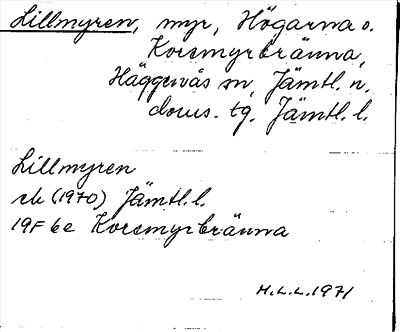 Lillmyren, myr, Högarna o.
Korsmyrbränna,
Häggenås sn, Jämtl. n.
doms. tg, Jämtl. l.
Lillmyren
rk (1970) Jämtl. l.
19F 6e Korsmyrbränna
M.L.L. 1971